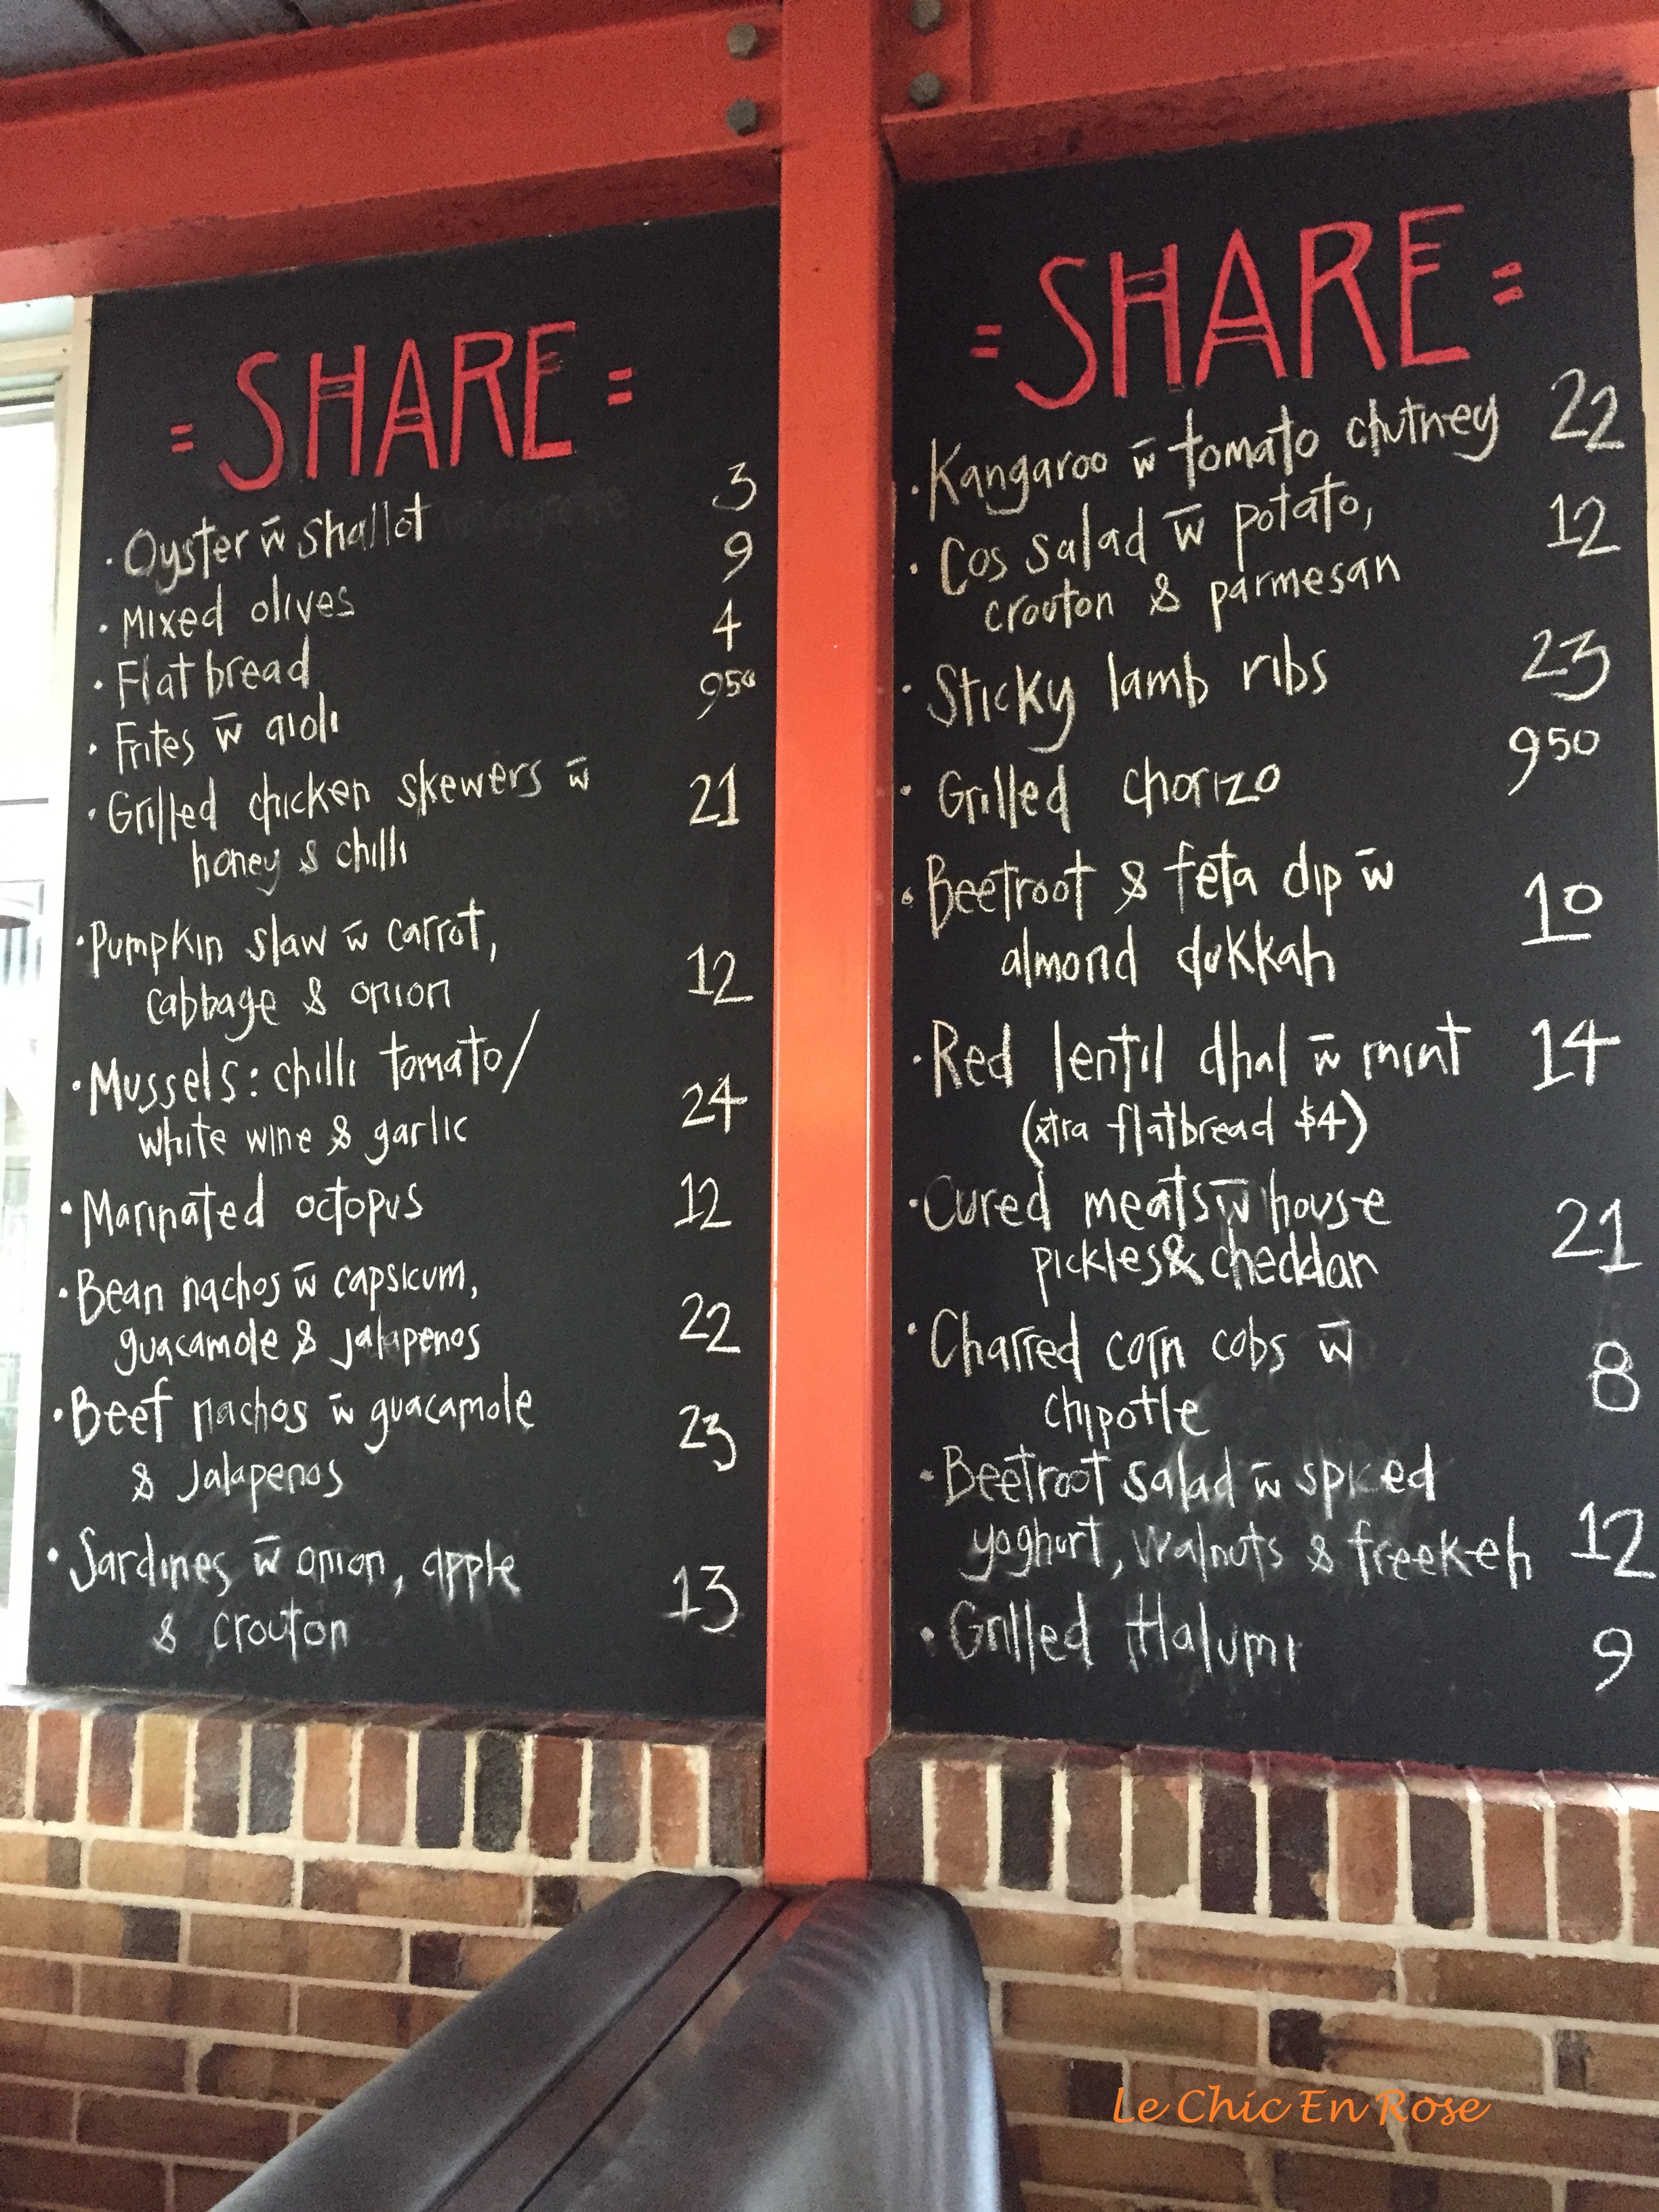 = SHARE =
· Oyster w̄ shallot 3
· Mixed olives 9
· Flat bread 4
· Frites w̄ aioli 9⁵⁰
· Grilled chicken skewers w̄
honey & chilli 21
· Pumpkin slaw w̄ carrot,
cabbage & onion 12
· Mussels: chilli tomato/
white wine & garlic 24
· Marinated octopus 12
· Bean nachos w̄ capsicum,
guacamole & jalapenos 22
· Beef nachos w̄ guacamole
& Jalapenos 23
· Sardines w̄ onion, apple
& crouton 13
= SHARE =
· Kangaroo w̄ tomato chutney 22
· Cos salad w̄ potato, 12
crouton & parmesan
· Sticky lamb ribs 23
· Grilled chorizo 9⁵⁰
· Beetroot & feta dip w̄
almond dukkah 10
· Red lentil dhal w̄ mint 14
(xtra flatbread $4)
· Cured meats w̄ house
pickles & cheddar 21
· Charred corn cobs w̄
chipotle 8
· Beetroot salad w̄ spiced
yoghurt, walnuts & freekeh 12
· Grilled Halumi 9
Le Chic En Rose